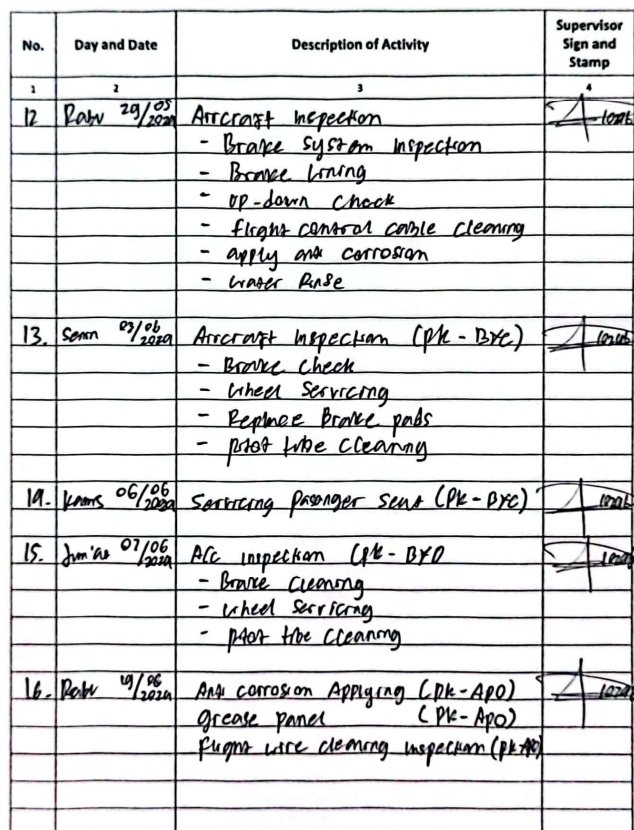 No. Day and Date Description of Activity Supervisor Sign and Stamp
1 2 3 4
12 Rabu 29/05 2024 Aircraft inspection
- Brake system inspection
- Brake Lining
- up-down check
- flight control cable cleaning
- apply anti corrosion
- water Rinse
13. Senin 03/06 2024 Aircraft inspection (PK - BYC)
- Brake check
- wheel Servicing
- Replace Brake pads
- pitot tube cleaning
14. Kamis 06/06 2024 Servicing pasanger seat (PK - BYC)
15. Jum'at 07/06 2024 A/C inspection (PK - BYO
- Brake cleaning
- wheel servicing
- pitot tube cleaning
16. Rabu 06 2024 Anti corrosion Applying (PK-APO)
grease panel (PK-APO)
flight wire cleaning inspection (PK-APO)